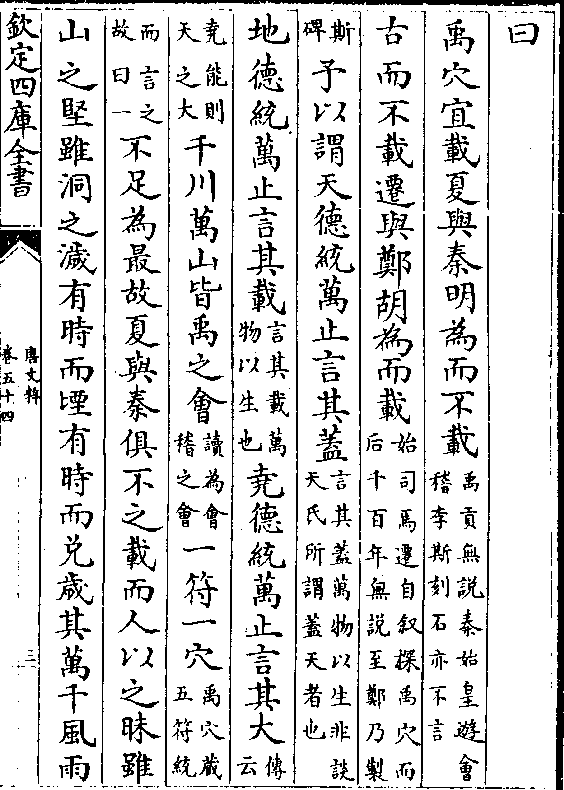 曰
禹穴宜載夏與秦明為而不載禹貢無説秦始皇遊會稽李斯刻石亦不言
古而不載遷與鄭胡為而載始司馬遷自叙探禹穴而后千百年無説至鄭乃製
斯碑予以謂天德統萬止言其蓋言其蓋萬物以生非談天氏所謂蓋天者也
地德統萬止言其載言其載萬物以生也堯德統萬止言其大傳云
堯能則天之大千川萬山皆禹之會讀為會稽之會一符一穴禹穴藏五符統
而言之故曰一不足為最故夏與秦俱不之載而人以之昧雖
山之堅雖洞之濊有時而堙有時而兑歳其萬千風雨
欽定四庫全書
唐文粹
卷五十四
三